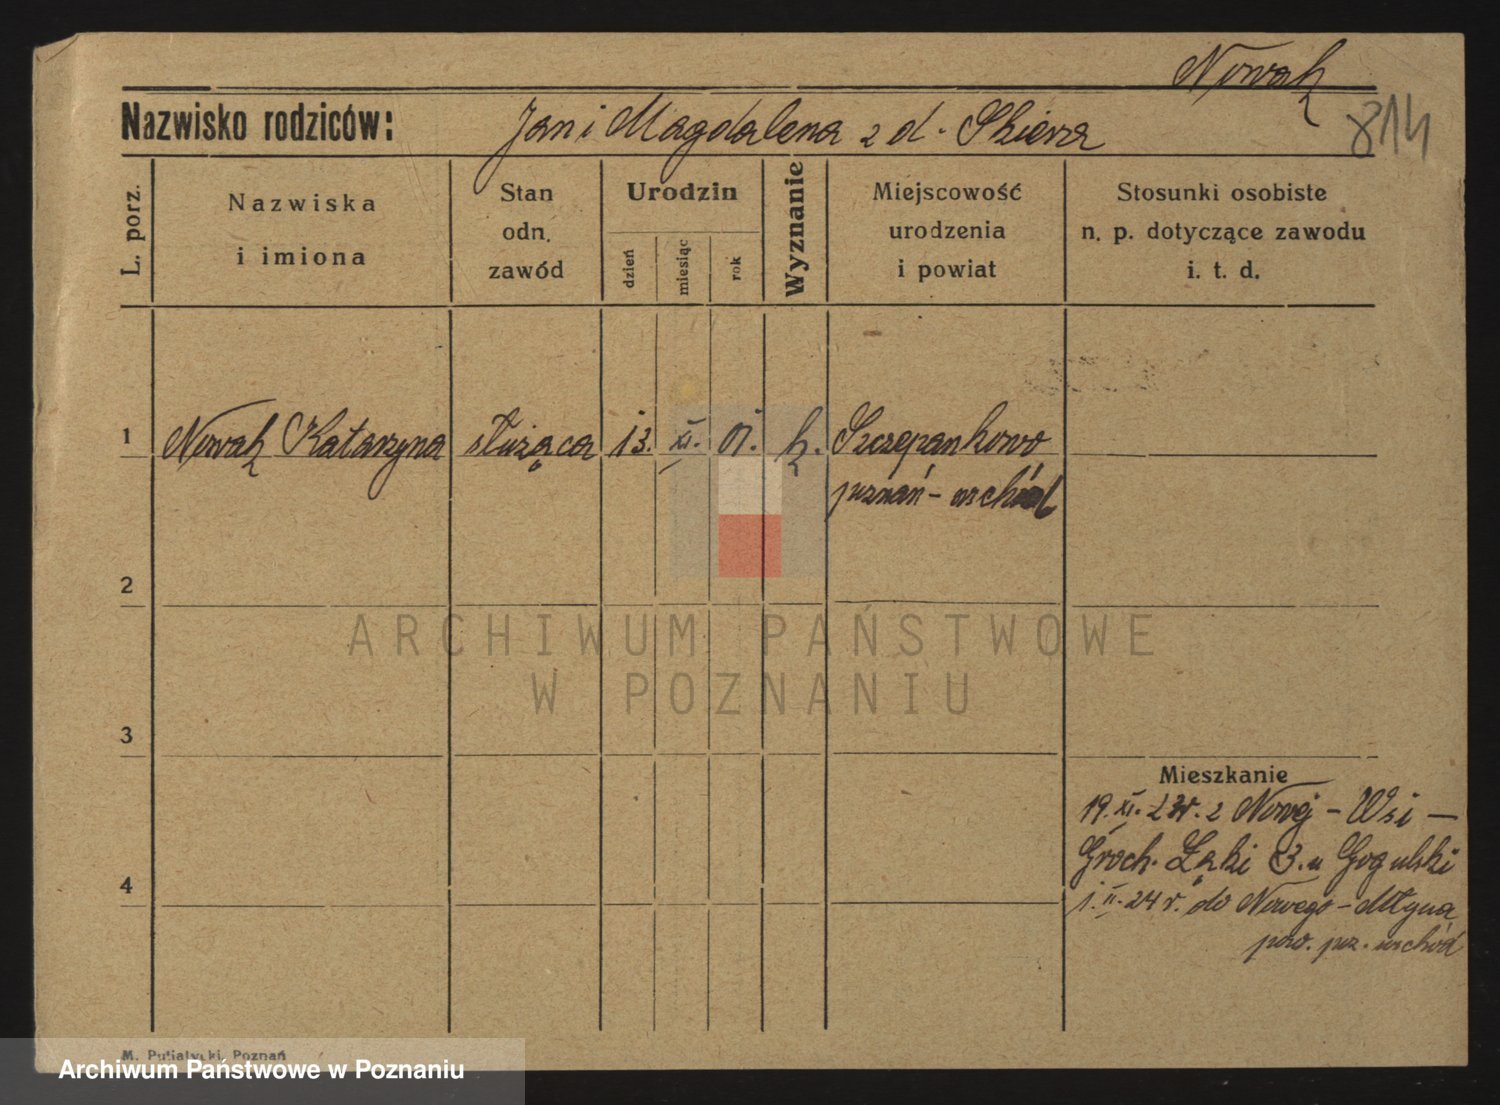 Nowak
Nazwisko rodziców: Jan i Magdalena z d. Skiera
814
L. porz.
Nazwiska i imiona
Stan odn. zawód
Urodzin
dzień
miesiąc
rok
Wyznanie
Miejscowość urodzenia i powiat
Stosunki osobiste n. p. dotyczące zawodu i. t. d.
1 Nowak Katarzyna służąca 13. XI. 01. k. Szczepankowo
poznań - wschód
2
ARCHIWUM PAŃSTWOWE
W POZNANIU
3
Mieszkanie
19. XI. 23r. z Nowej - Wsi -
Groch. Łąki 3. u Gogulski
4
1. II. 24 r. do Nowego - Młyna
pow. pz. wschód
M. Putiatycki, Poznań
Archiwum Państwowe w Poznaniu